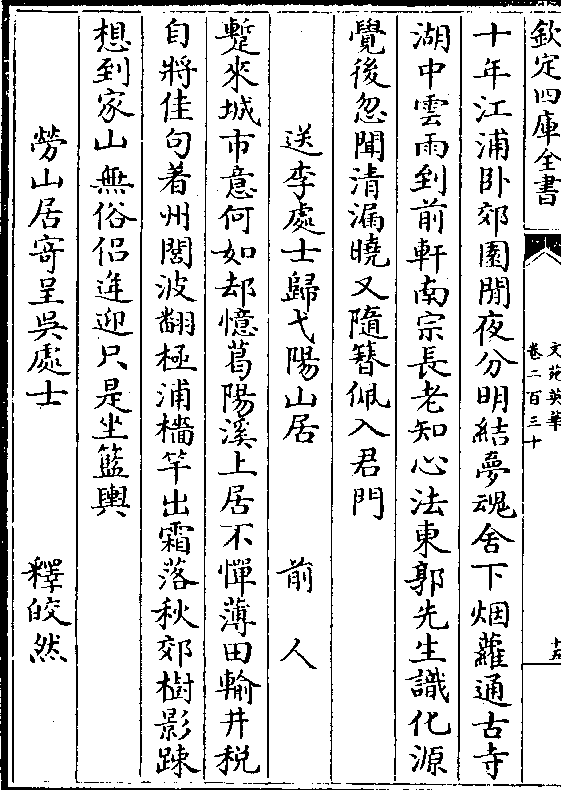 欽定四庫全書
文苑英華
卷二百三十
十五
十年江浦卧郊園閒夜分明結夢魂舍下烟蘿通古寺
湖中雲雨到前軒南宗長老知心法東郭先生識化源
覺後忽聞清漏曉又隨簪佩入君門
送李處士歸弋陽山居　前人
蹔來城市意何如却憶葛陽溪上居不憚薄田輸井税
自將佳句著州閭波翻極浦檣竿出霜落秋郊樹影踈
想到家山無俗侣逢迎只是坐籃輿
勞山居寄呈吳處士　釋皎然